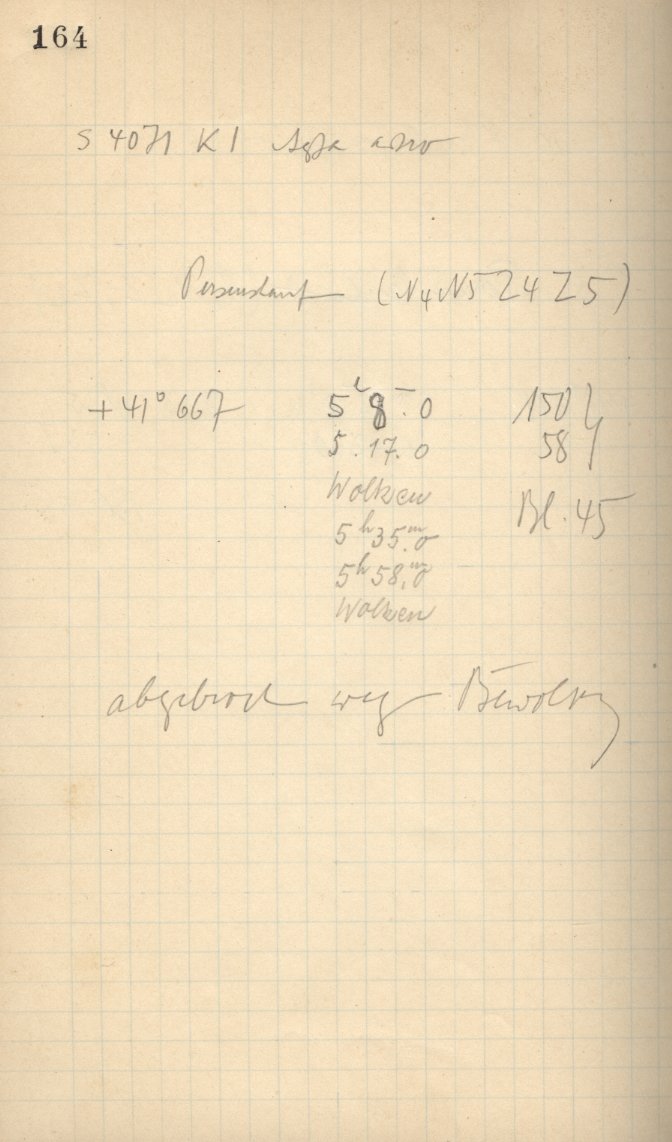 164
S 4071 K I Agfa astro
(N4 N5 Z4 Z5)
+41° 667 5h 8m.0 150
5. 17. 0 58
Wolken
Bl. 45
5h 35m.0
5h 58m.0
Wolken
abgebroch weg Bewolkg